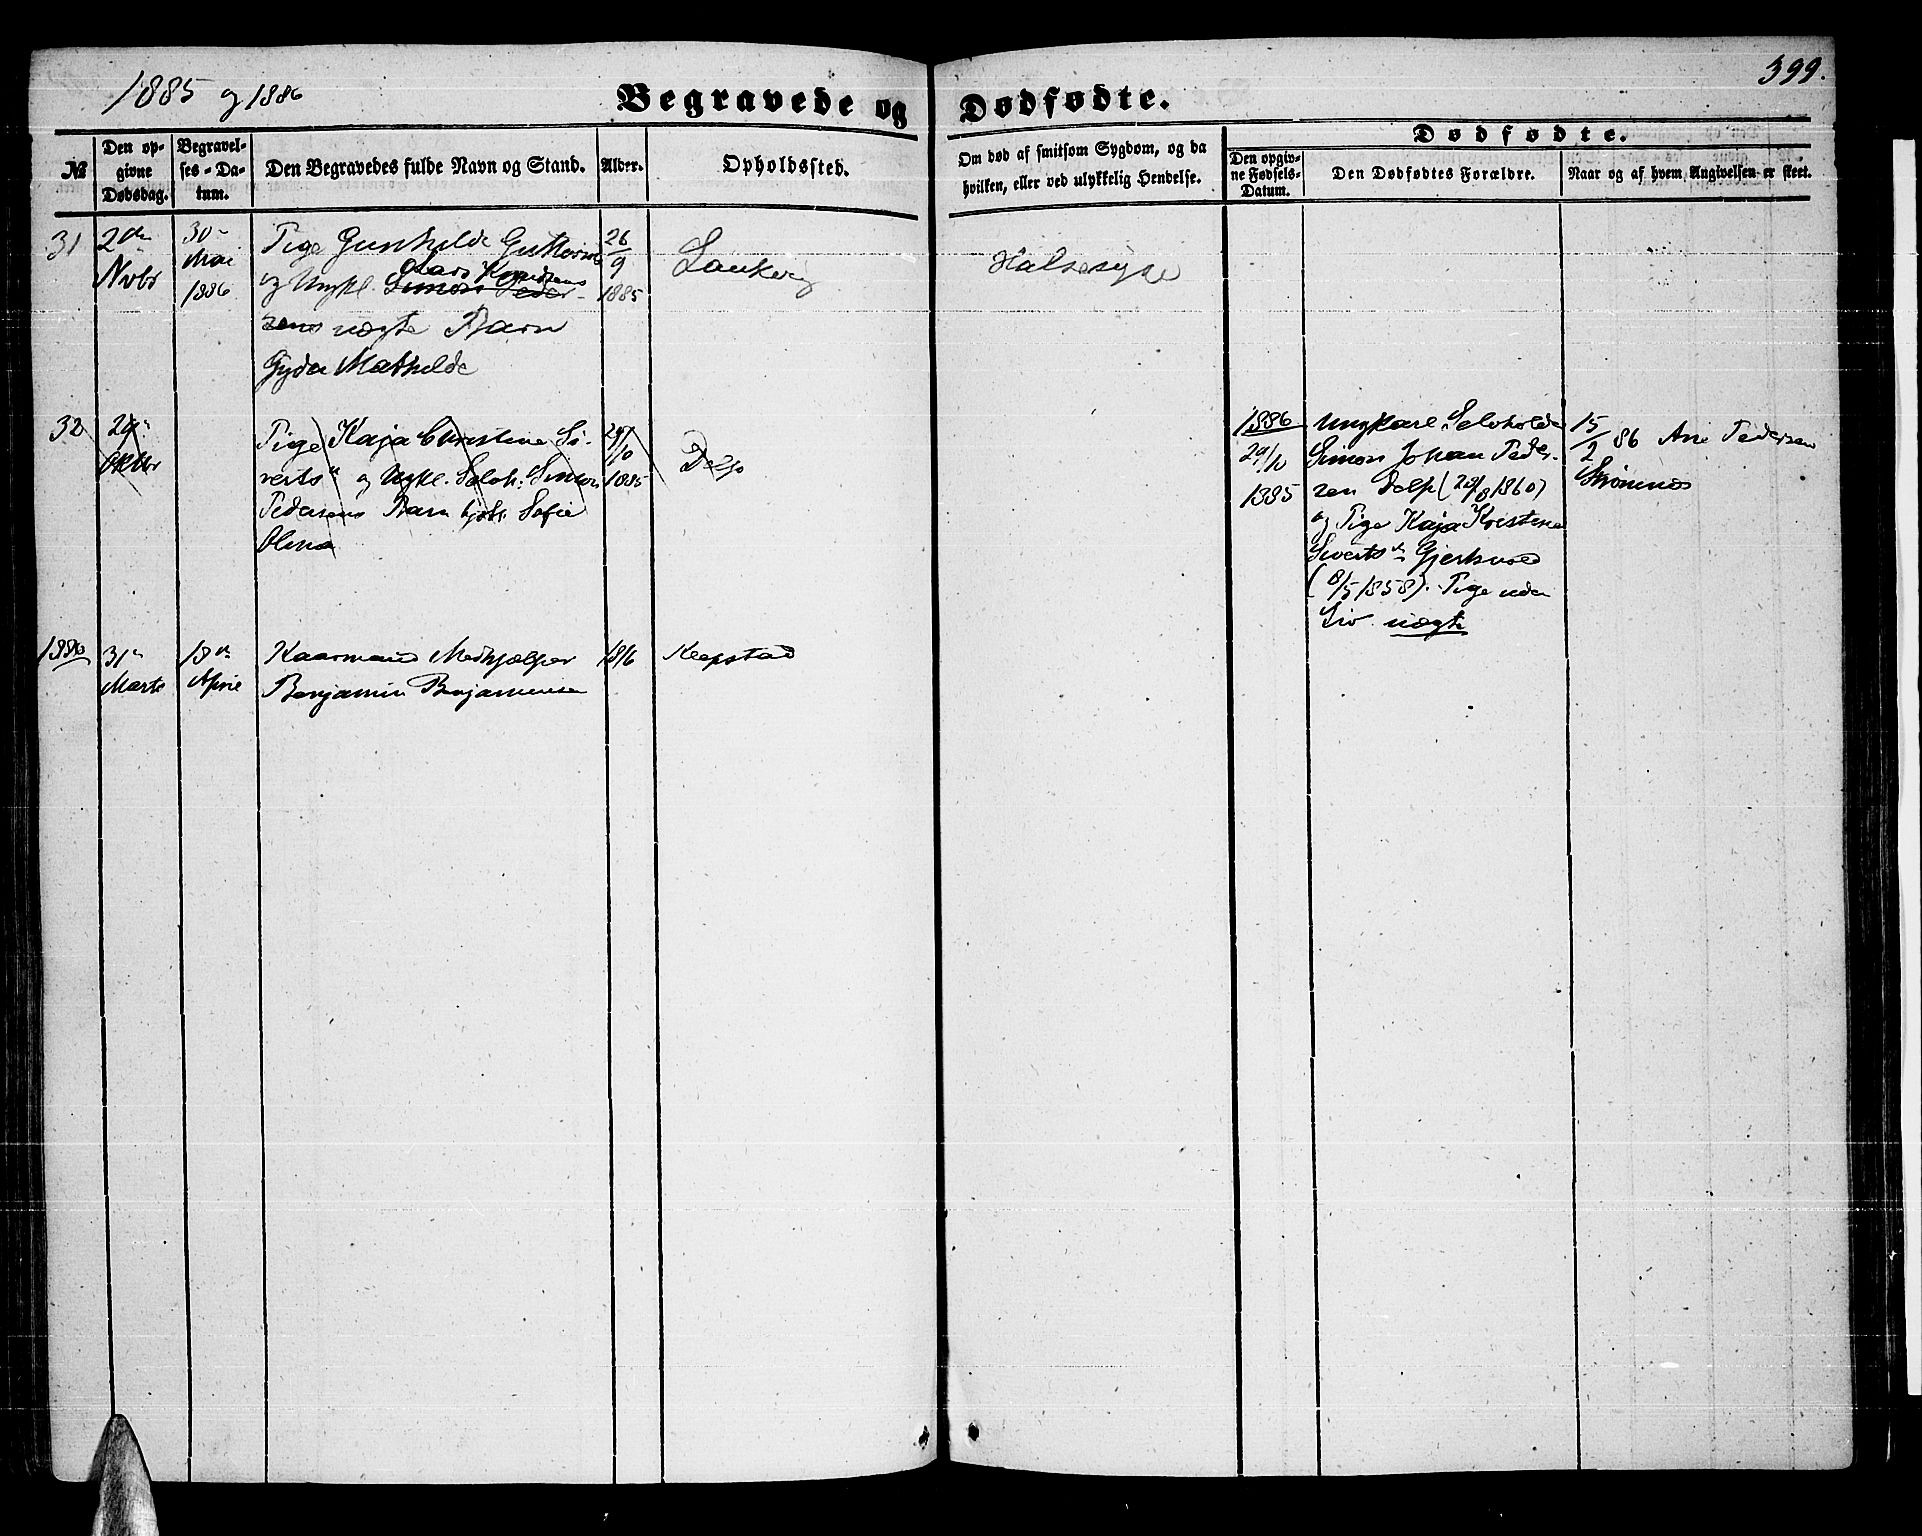 1885 og 1886
Begravede og Dødfødte.
399.
№
Den op-
givne
Dødsdag.
Begravel-
ses-Da-
tum.
Den Begravedes fulde Navn og Stand.
Alder.
Opholdssted.
Om død af smitsom Sygdom, og da
hvilken, eller ved ulykkelig Hendelse.
Dødfødte.
Den opgiv-
ne Fødsels-
Datum.
Den Dødfødtes Forældre.
Naar og af hvem Angivelsen er skeet.
31
2den
Nvbr
30-
Mai
1886
Tige Gunhilde
og Ungkl. Simon Peder-
Lars Knudsens
sens uægte Barn
Gyda Mathilde
26
9
1885
Halsesyge
32
29
Oktbr
Pige Kaja Christine Si-
verts og Ungkl. Selvh: Simon
Pedersens Barn hjdbt Sofie
Olina
29/10
1885
Delp
1886
29/10
1885
Ungkarl Selvholden
Simon Johan Peder-
sen Delp (28/8 1860)
og Pige Kaja Kristine
Siverts
(8/5 1858). Pige uden
Liv. uægte
15
2 86 Ane Pedersen
Strømnes
1886
31
Marts
18de
April
Kaarmand Medhjælper
Benjamin Benjaminsen
1816
Kolpstad